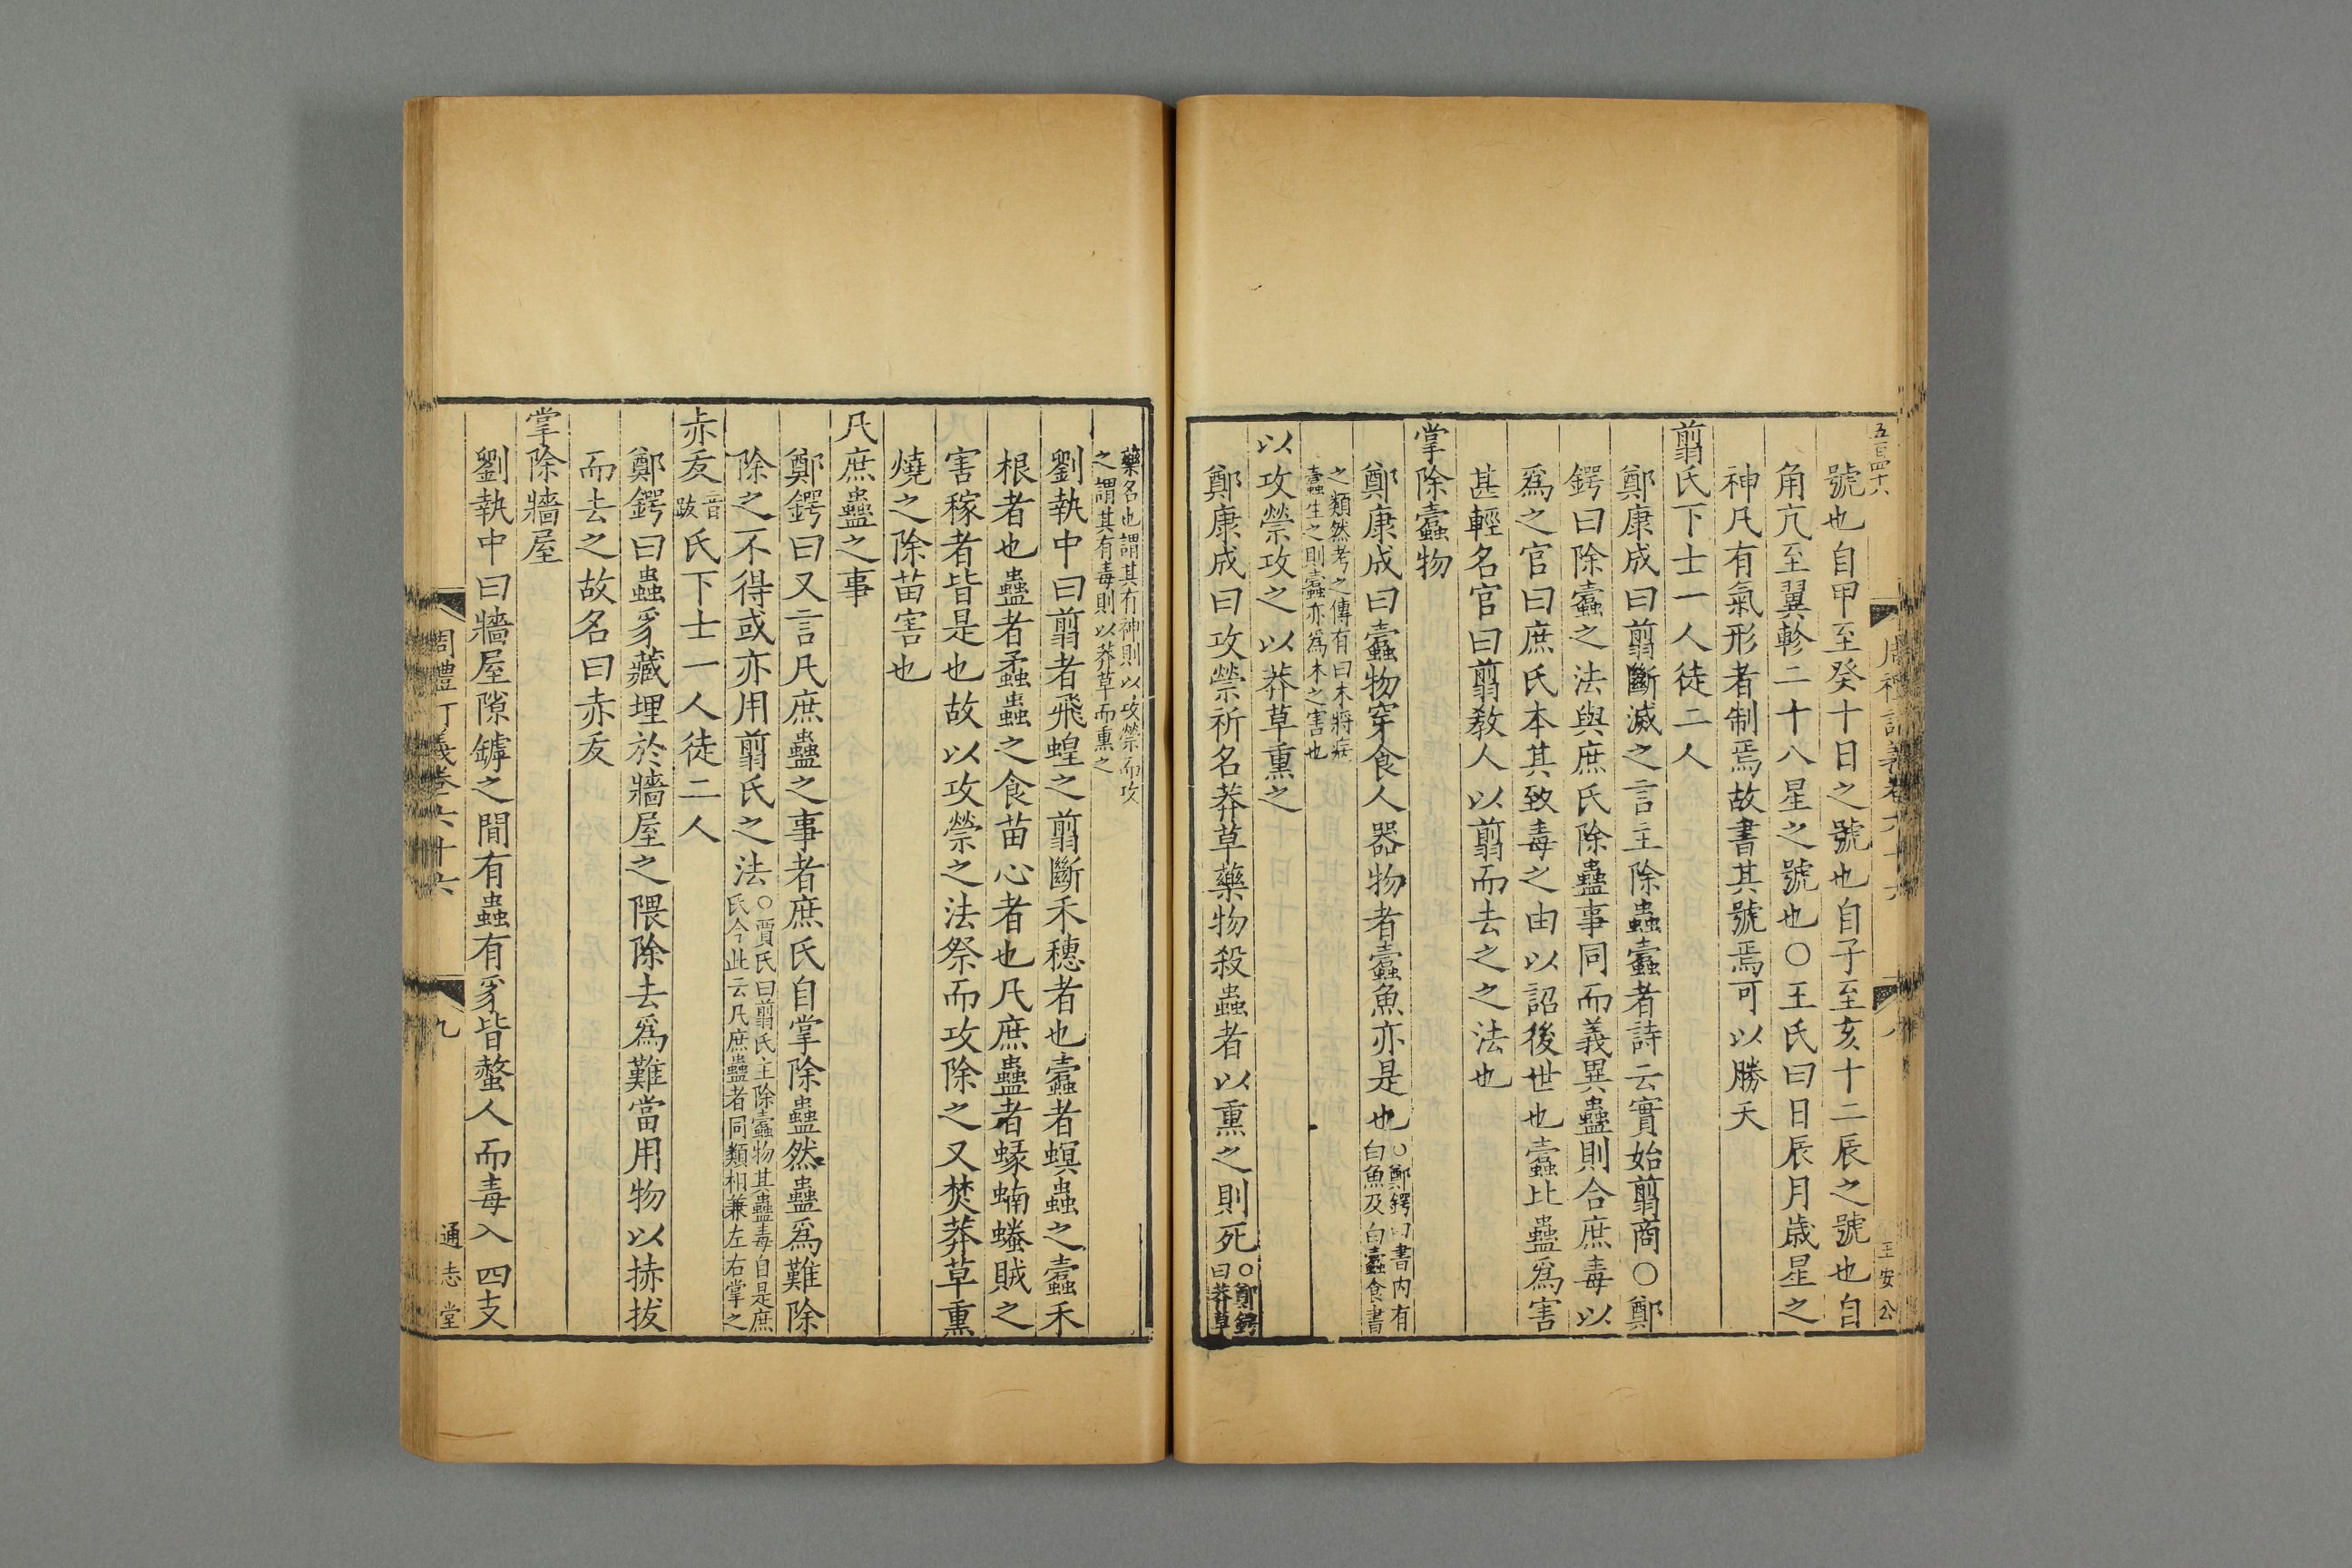 五百四十八
周禮訂義卷六十六
八
王安公
號也自甲至癸十日之號也自子至亥十二辰之號也自
角亢至翼軫二十八星之號也○王氏曰日辰月歲星之
神凡有氣形者制焉故書其號焉可以勝夭
翦氏下士一人徒二人
鄭康成曰翦斷滅之言主除蟲蠹者詩云實始翦商○鄭
鍔曰除蠹之法與庶氏除蠱事同而義異蠱則合庶毒以
爲之官曰庶氏本其致毒之由以詔後世也蠹比蠱爲害
甚輕名官曰翦敎人以翦而去之之法也
掌除蠹物
鄭康成曰蠹物穿食人器物者蠹魚亦是也○鄭鍔曰書内有
白魚及白蠹食書
之類然考之傳有曰木將病
蠹生之則蠹亦爲木之害也
以攻禜攻之以莽草熏之
鄭康成曰攻禜祈名莽草藥物殺蟲者以熏之則死○鄭鍔
曰莽草
藥名也謂其有神則以攻禜而攻
之謂其有毒則以莽草而熏之
劉執中曰翦者飛蝗之翦斷禾穗者也蠹者螟蟲之蠹禾
根者也蠱者蟊蟲之食苗心者也凡庶蠱者蝝蝻蟠賊之
害稼者皆是也故以攻禜之法祭而攻除之又焚莽草熏
燒之除苗害也
凡庶蠱之事
鄭鍔曰又言凡庶蠱之事者庶氏自掌除蠱然蠱爲難除
除之不得或亦用翦氏之法○賈氏曰翦氏主除蠹物其蠱毒自是庶
氏今此云凡庶蠱者同類相兼左右掌之
赤犮音跋氏下士一人徒二人
鄭鍔曰蟲豸藏埋於牆屋之隈除去爲難當用物以捇拔
而去之故名曰赤犮
掌除牆屋
劉執中曰牆屋隙罅之間有蟲有豸皆螫人而毒入四支
周禮訂義卷六十六
九
通志堂